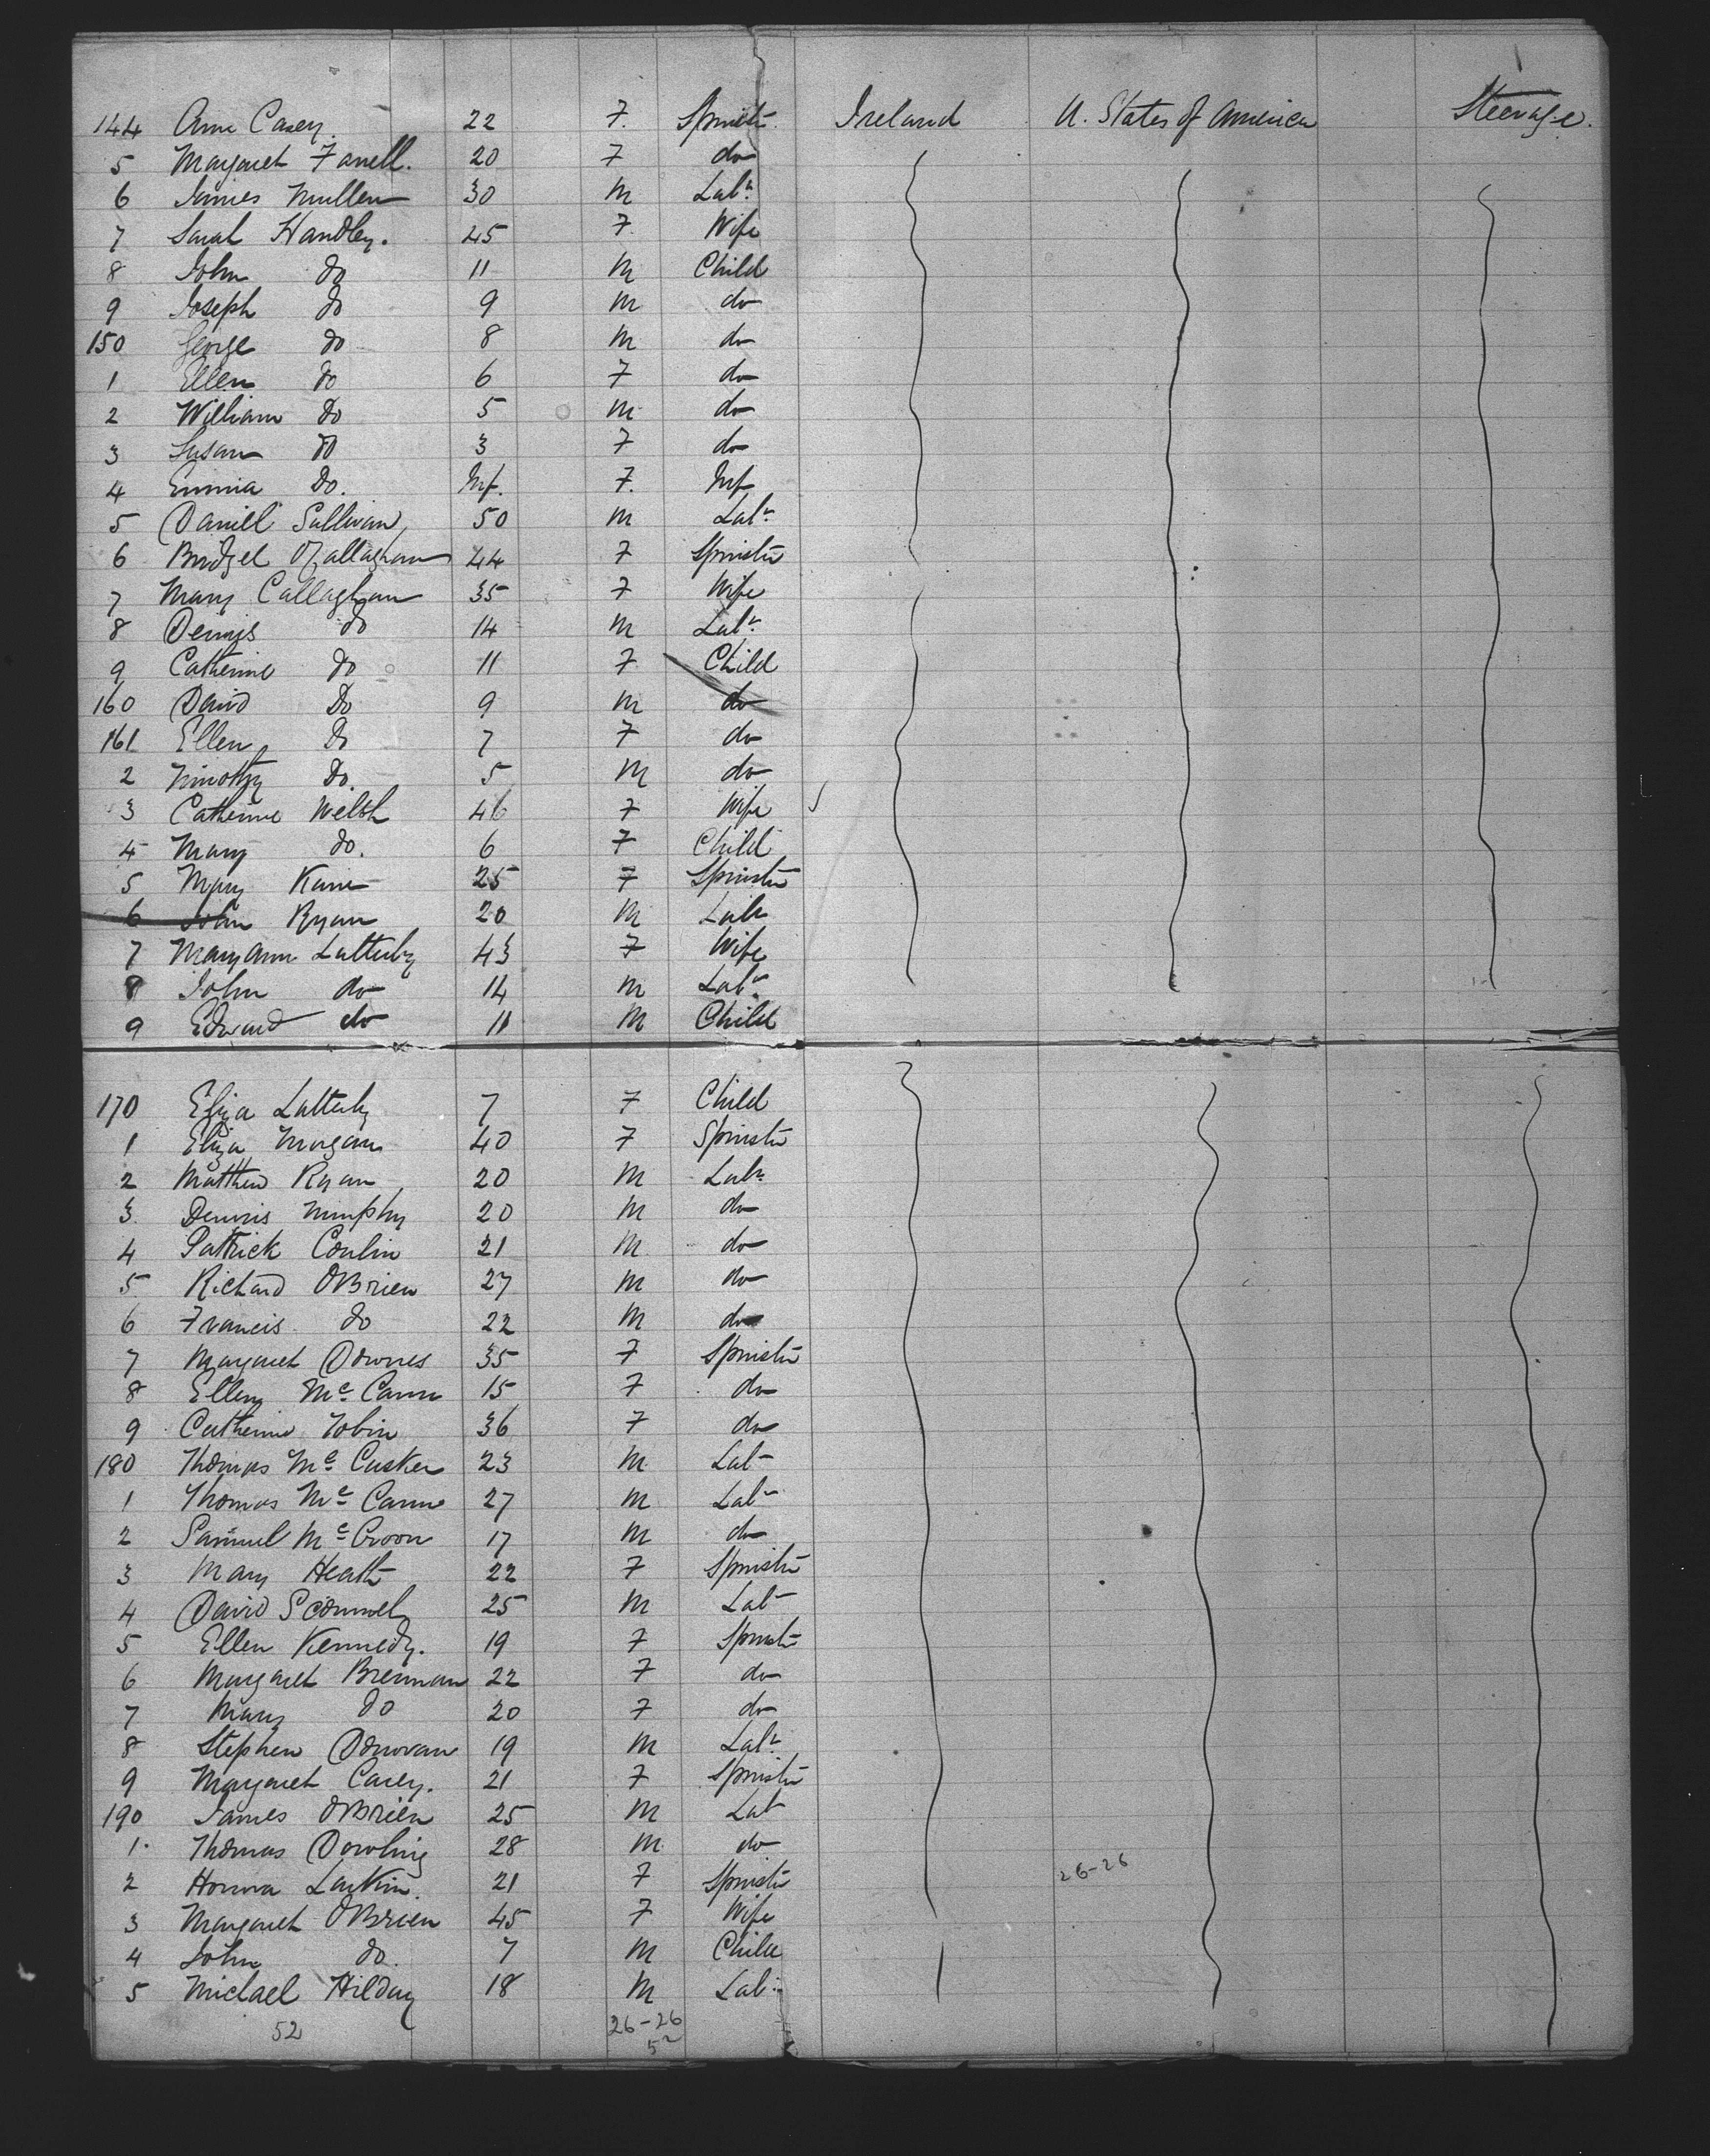 144 Ann Casey. 22 F. Spinstr. Ireland U. States of America Steerage.
5 Margaret Farrell. 20 F do
6 James Mullen 30 M Labr.
7 Sarah Handley. 45 F. Wife
8 John do 11 M Child
9 Joseph do 9 M do
150 George do 8 M do
1 Ellen do 6 F do
2 William do 5 M do
3 Susan do 3 F do
4 Emma Do. Inf. F. Inf
5 Daniel Sullivan 50 M Labr.
6 Bridget O'Callaghan 44 F Spinstr
7 Mary Callaghan 35 F Wife
8 Dennis do 14 M Labr.
9 Catherine do 11 F Child
160 David Do 9 M do
161 Ellen Do 7 F do
2 Timothy Do. 5 M do
3 Catherine Welsh 46 F Wife
4 Mary do. 6 F Child
5 Mary Kane 25 F Spinstr
6 John Ryan 20 M Labr
7 Mary Ann Latterby 43 F Wife
8 John do 14 M Labr.
9 Edward do 11 M Child
170 Eliza Latterby 7 F Child
1 Eliza Morgan 40 F Spinstr
2 Matthew Ryan 20 M Labr.
3 Dennis Murphy 20 M do
4 Patrick Conlin 21 M do
5 Richard OBrien 27 M do
6 Francis do 22 M do
7 Margaret Downes 35 F Spinstr
8 Ellen Mc Cann 15 F do
9 Catherine Tobin 36 F do
180 Thomas Mc Cusker 23 M Lab
1 Thomas Mc Cann 27 M Labr
2 Samuel Mc 17 M do
3 Mary Heath 22 F Spinstr
4 David 25 M Lab
5 Ellen Kennedy. 19 F Spinstr
6 Margaret Brennan 22 F do
7 Mary do 20 F do
8 Stephen Donovan 19 M Labr.
9 Margaret Carey. 21 F Spinstr
190 James OBrien 25 M Lab
1 Thomas Dowling 28 M do
2 Honora Larkin. 21 F Spinstr 26-26
3 Margaret OBrien 45 F Wife
4 John do. 7 M Child
5 Michael Hilday 18 M Lab.
52 26-26
52